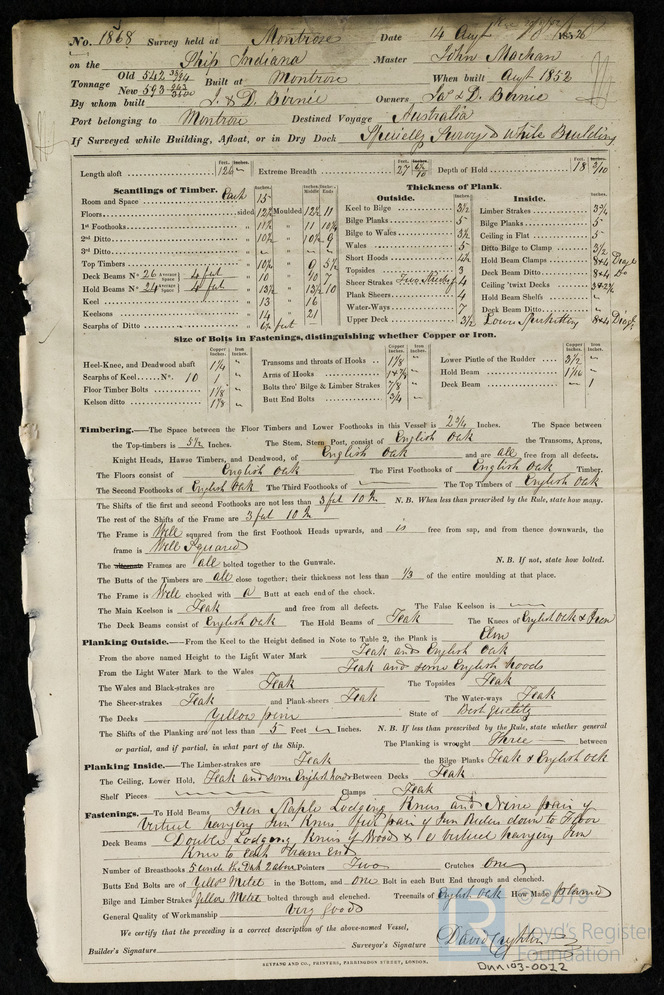 No. 1868 Survey held at Montrose Date 14 Augt 1856
on the Ship Indiana Master John Machan
Tonnage Old 542 New 593 Built at Montrose When built Augt 1852
By whom built J. & D. Birnie Owners Jas & D. Birnie
Port belonging to Montrose Destined Voyage Australia
If Surveyed while Building, Afloat, or in Dry Dock Specially Surveyed While Building
Feet. Inches. Feet. Inches. Feet. Inches.
Length aloft 126 Extreme Breadth 27 6/10 Depth of Hold 18 3/10
Scantlings of Timber. Thickness of Plank.
Room and Space Each 15
Floors sided 12½ Moulded 12½ 11
1st Foothooks 11½ 11 10½
2nd Ditto 10½ 10½ 9
3rd Ditto
Top Timbers 10½ 9 5½
Deck Beams No. 26 Average Space 4 feet 10
Hold Beams No. 24 Average Space 4 feet 13½ 13½ 10
Keel 13 16
Keelsons 14 21
Scarphs of Ditto 6½ feet
Outside.
Keel to Bilge 3½
Bilge Planks 5
Bilge to Wales 3½
Wales 5
Short Hoods 4½
Topsides 3
Sheer Strakes 4
Plank Sheers 4
Water-Ways 7
Upper Deck 3½
Inside.
Limber Strakes 3¾
Bilge Planks 5
Ceiling in Flat 5
Ditto Bilge to Clamp 3½
Hold Beam Clamps 8+4 Diagl
Deck Beam Ditto 8+4 Do
Ceiling 'twixt Decks 3+2½
Hold Beam Shelfs
Deck Beam Ditto
Lower Spirketting 8+4 Diagl
Size of Bolts in Fastenings, distinguishing whether Copper or Iron.
Copper Inches. Iron Inches. Copper Inches. Iron Inches. Copper Inches. Iron Inches.
Heel-Knee, and Deadwood abaft 1¼
Scarphs of Keel No. 10 1
Floor Timber Bolts 1⅛
Kelson ditto 1⅛
Transoms and throats of Hooks 1⅛
Arms of Hooks
Bolts thro' Bilge & Limber Strakes 7/8
Butt End Bolts ¾
Lower Pintle of the Rudder 3½
Hold Beam 1 1/16
Deck Beam 1
Timbering.—The Space between the Floor Timbers and Lower Foothooks in this Vessel is 2¾ Inches. The Space between
the Top-timbers is 5½ Inches. The Stem, Stern Post, consist of English Oak the Transoms, Aprons,
Knight Heads, Hawse Timbers, and Deadwood, of English Oak and are all free from all defects.
The Floors consist of English Oak The First Foothooks of English Oak Timber.
The Second Foothooks of English Oak The Third Foothooks of The Top Timbers of English Oak
The Shifts of the first and second Foothooks are not less than 3 feet 10 In N. B. When less than prescribed by the Rule, state how many.
The rest of the Shifts of the Frame are 3 feet 10 In
The Frame is Well squared from the first Foothook Heads upwards, and is free from sap, and from thence downwards, the
frame is Well Squared
The alternate Frames are all bolted together to the Gunwale. N. B. If not, state how bolted.
The Butts of the Timbers are all close together; their thickness not less than 1/3 of the entire moulding at that place.
The Frame is Well chocked with a Butt at each end of the chock.
The Main Keelson is Teak and free from all defects. The False Keelson is
The Deck Beams consist of English Oak The Hold Beams of Teak The Knees of English Oak & Iron
Planking Outside.—From the Keel to the Height defined in Note to Table 2, the Plank is Elm
From the above named Height to the Light Water Mark Teak and English Oak
From the Light Water Mark to the Wales Teak and some English hoods
The Wales and Black-strakes are Teak The Topsides Teak
The Sheer-strakes Teak and Plank-sheers Teak The Water-ways Teak
The Decks Yellow pine State of Best Quality
The Shifts of the Planking are not less than 5 Feet Inches. N. B. If less than prescribed by the Rule, state whether general
or partial, and if partial, in what part of the Ship. The Planking is wrought Three between
Planking Inside.—The Limber-strakes are Teak the Bilge Planks Teak & English Oak
The Ceiling, Lower Hold, Teak and some English hoods Between Decks Teak
Shelf Pieces Clamps Teak
Fastenings.—To Hold Beams Iron Staple Lodging Knees and Nine pair of
Vertical hanging Iron Knees pair of Iron Riders down to Floor
Deck Beams Double Lodging Knees of Wood & a vertical hanging Iron
Knee to Each Beam End
Number of Breasthooks 5 under the Deck 2 above Pointers Two Crutches One
Butts End Bolts are of Yellow Metal in the Bottom, and One Bolt in each Butt End through and clenched.
Bilge and Limber Strakes Yellow Metal bolted through and clenched. Treenails of English Oak How Made Planed
General Quality of Workmanship Very good
We certify that the preceding is a correct description of the above-named Vessel,
Builder's Signature Surveyor's Signature David Crighton
SEYFANG AND CO., PRINTERS, FARRINGDON STREET, LONDON.
© 2019
LR
Lloyd's Register
Foundation
DUN103-0022